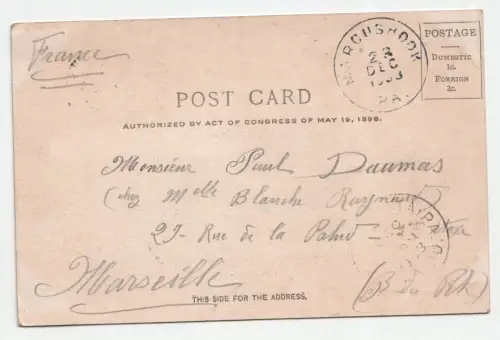 France
MARCUSHOOK
DEC
1903
PA.
POSTAGE
DOMESTIC
1c.
FOREIGN
2c.
POST CARD
AUTHORIZED BY ACT OF CONGRESS OF MAY 19, 1898.
Monsieur Paul Daumas
(chez Melle Blanche Raynaud)
29 - Rue de la Palud -
Marseille
(B du Rh)
THIS SIDE FOR THE ADDRESS.